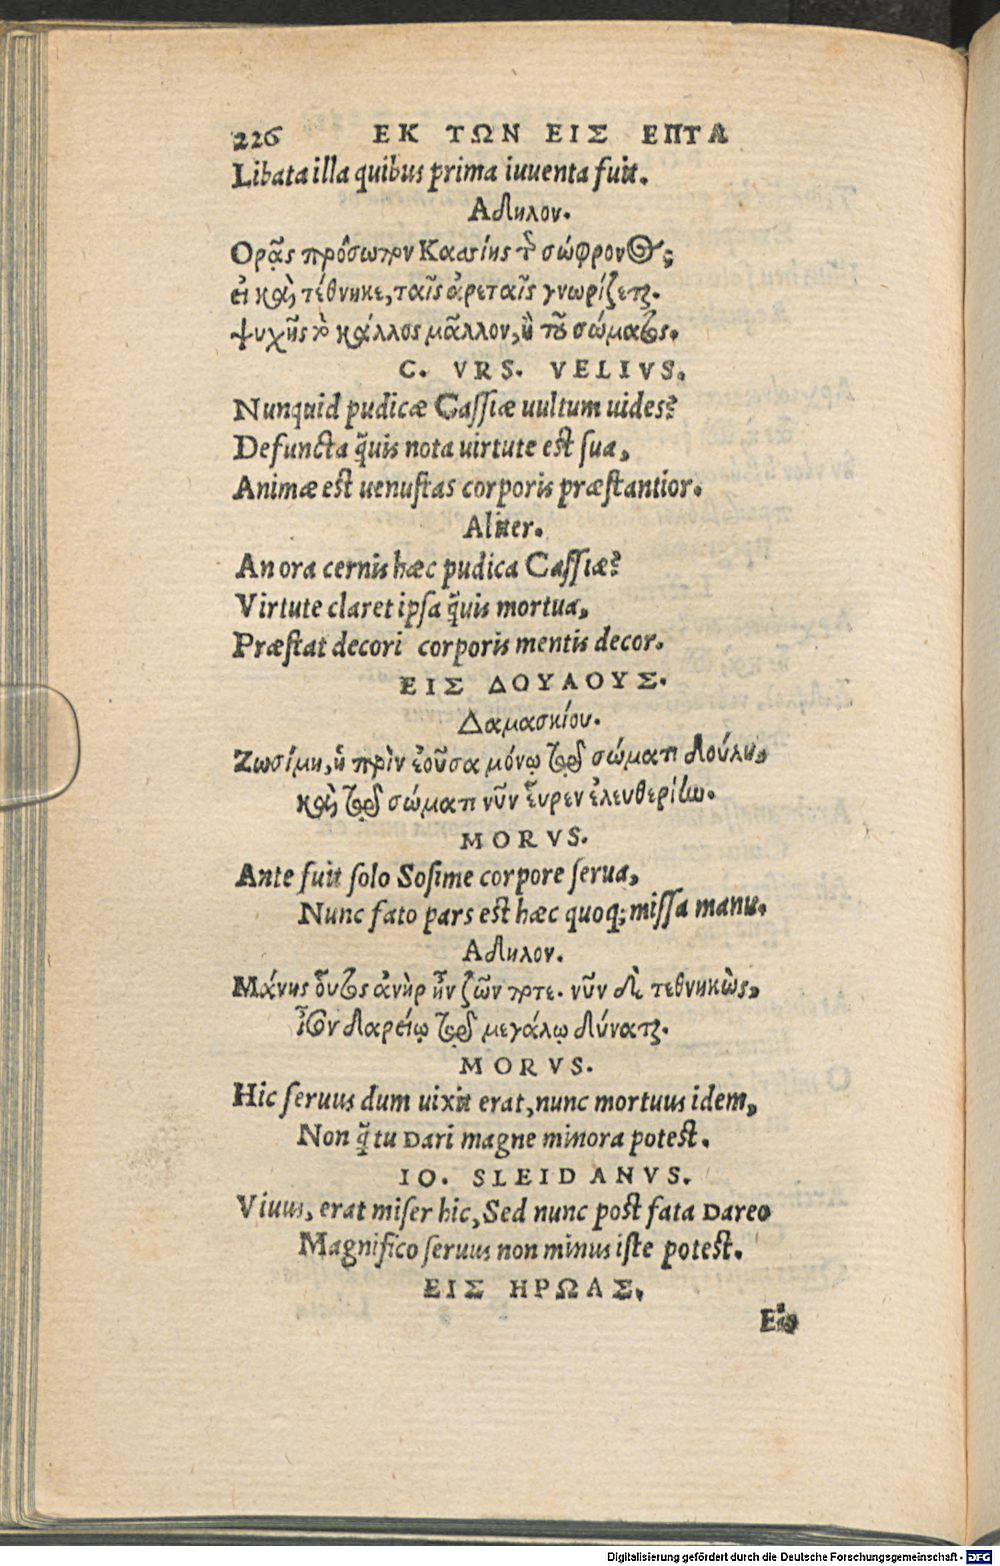 226 ΕΚ ΤΩΝ ΕΙΣ ΕΠΤΑ
Libata illa quibus prima iuuenta fuit.
Αδηλον.
Ορᾷς πρόσωπον Κασίης τ̂ σώφρονος;
εἰ καὶ τέθνηκε, ταῖς ἀρεταῖς γνωρίζεται.
ψυχῆς τὸ κάλλος μᾶλλον, ἢ τοῦ σώματος.
C. VRS. VELIVS.
Nunquid pudicæ Cassiæ uultum uides?
Defuncta q̃uis nota uirtute est sua,
Animæ est uenustas corporis præstantior.
Aliter.
An ora cernis hæc pudica Cassiæ?
Virtute claret ipsa q̃uis mortua,
Præstat decori corporis mentis decor.
ΕΙΣ ΔΟΥΛΟΥΣ.
Δαμασκίου.
Ζωσίμη, ἡ πρὶν ἐοῦσα μόνῳ τῷ σώματι δούλη,
καὶ τῷ σώματι νῦν εὗρεν ἐλευθερίην.
MORVS.
Ante fuit solo Sosime corpore serua,
Nunc fato pars est hæc quoq; missa manu.
Αδηλον.
Μάνης οὗτος ἀνὴρ ἦν ζῶν ποτε. νῦν δὲ τεθνηκὼς,
ἶσον Δαρείῳ τῷ μεγάλῳ δύναται.
MORVS.
Hic seruus dum uixit erat, nunc mortuus idem,
Non q̃ tu Dari magne minora potest.
IO. SLEIDANVS.
Viuus, erat miser hic, Sed nunc post fata Dareo
Magnifico seruus non minus iste potest.
ΕΙΣ ΗΡΩΑΣ.
Εἰς
Digitalisierung gefördert durch die Deutsche Forschungsgemeinschaft - DFG